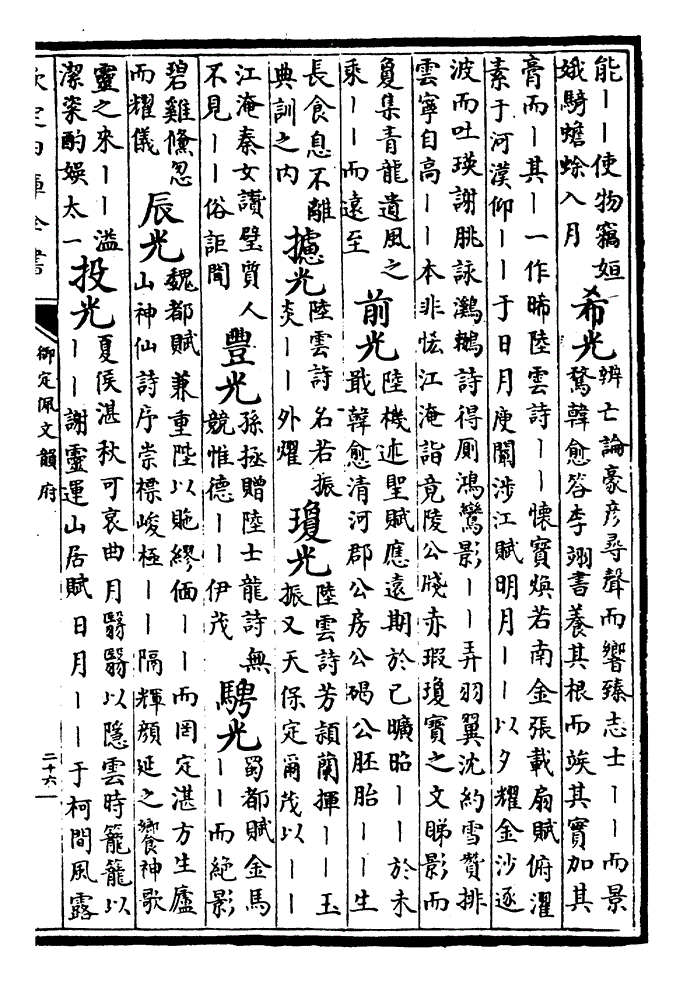 能——使物竊姮
娥騎蟾蜍入月
希光
辨亡論豪彥尋聲而響臻志士——而景
騖韓愈答李翊書養其根而竢其實加其
膏而—其—一作晞陸雲詩——懷寶煥若南金張載扇賦俯濯
素于河漢仰——于日月庾闡涉江賦明月——以夕耀金沙逐
波而吐瑛謝朓詠鸂鶒詩得厠鴻鸞影——弄羽翼沈約雪贊排
雲寧自高——本非怯江淹詣竟陵公牋赤瑕瓊寶之文睇影而
負集青龍遺風之
乘——而遠至
前光
陸機述聖賦應遠期於已曠昭——於未
戢韓愈清河郡公房公碣公胚胎——生
長食息不離
典訓之内
攄光
陸雲詩名若振
炎——外燿
瓊光
陸雲詩芳頴蘭揮——玉
振又天保定爾茂以——
江淹秦女讚璧質人
不見——俗詎聞
豐光
孫拯贈陸士龍詩無
競惟德——伊茂
騁光
蜀都賦金馬
——而絶影
碧雞儵忽
而耀儀
辰光
魏都賦兼重陛以貤繆価——而罔定湛方生廬
山神仙詩序崇標峻極——隔輝顔延之饗神歌
靈之來——溢
潔粢酌娱太一
投光
夏侯湛秋可哀曲月翳翳以隱雲時籠籠以
——謝靈運山居賦日月——于柯間風露
欽定四庫全書
御定佩文韻府
二十六